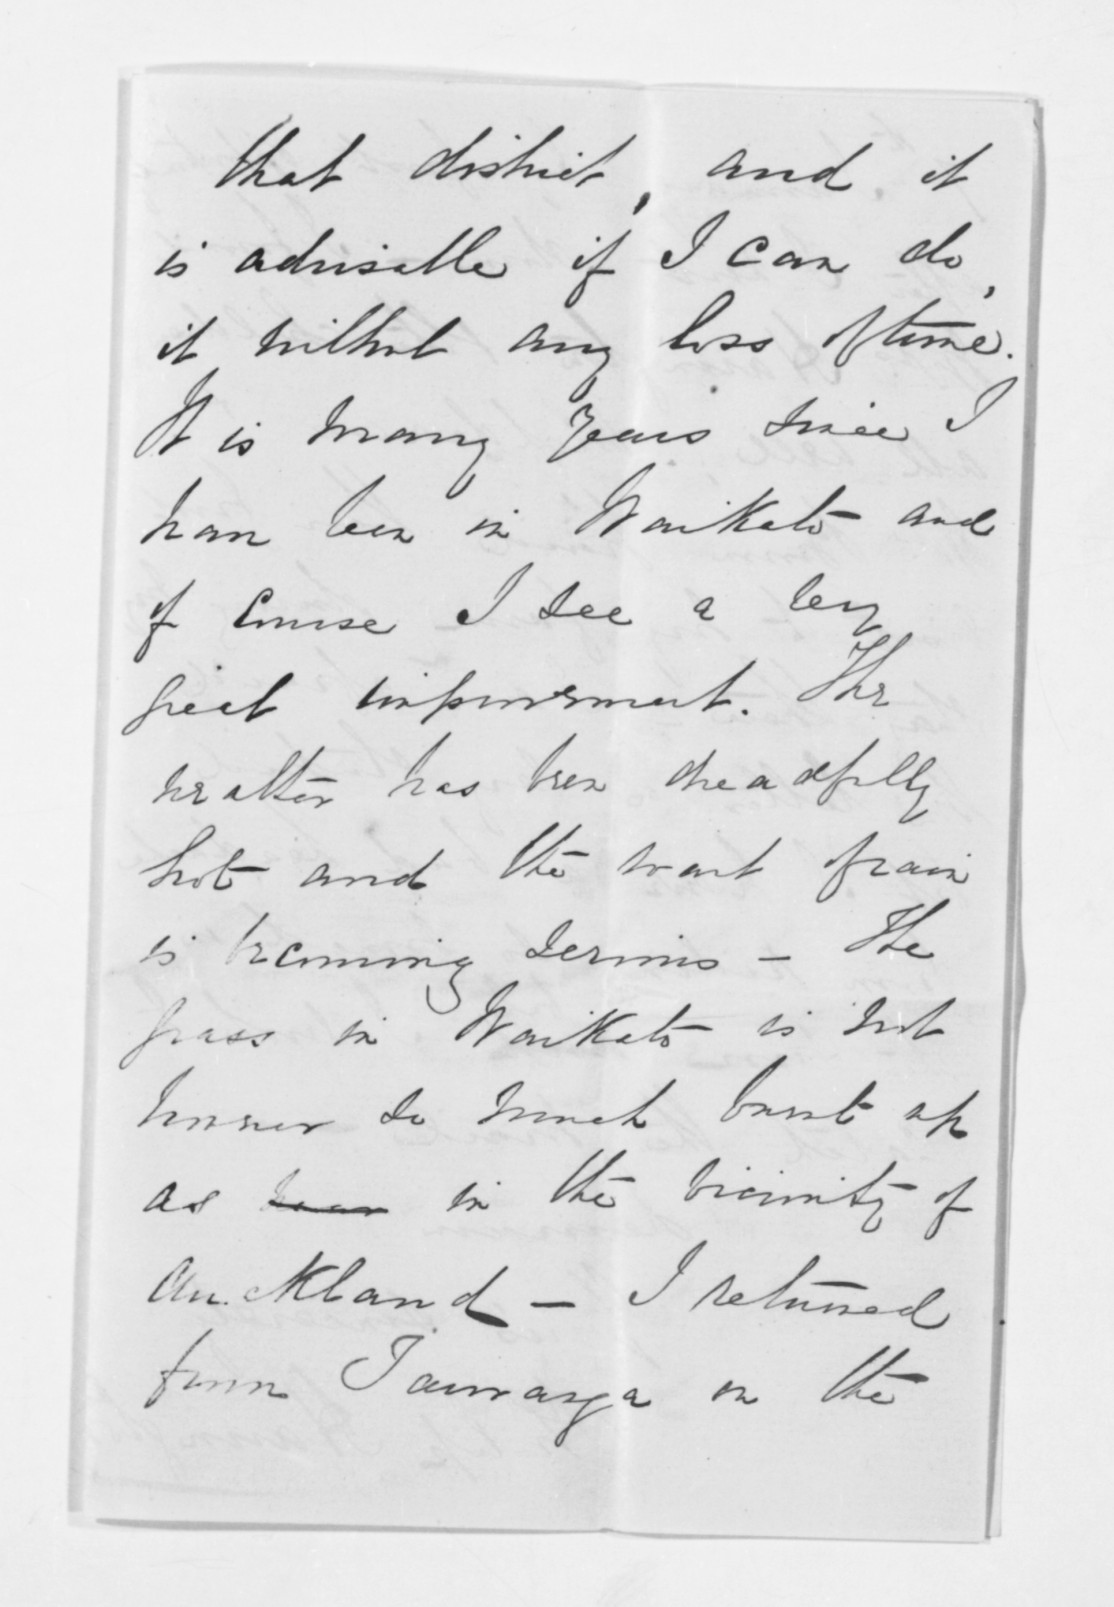 that district, and it
is advisable if I can do,
it without any loss of time.
It is many years since I
have been in Waikato and
of course I see a very
great improvement. The
weather has been dreadfully
hot and the want of rain
is becoming serious – the
grass in Waikato is not
however so much burnt up
as in the vicinity of
Auckland – I returned
from Tauranga on the